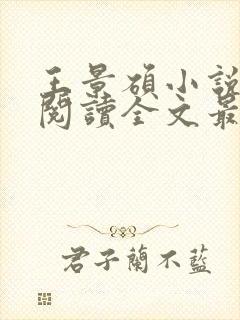 王景碩小說
閱讀全文最
君子蘭不藍